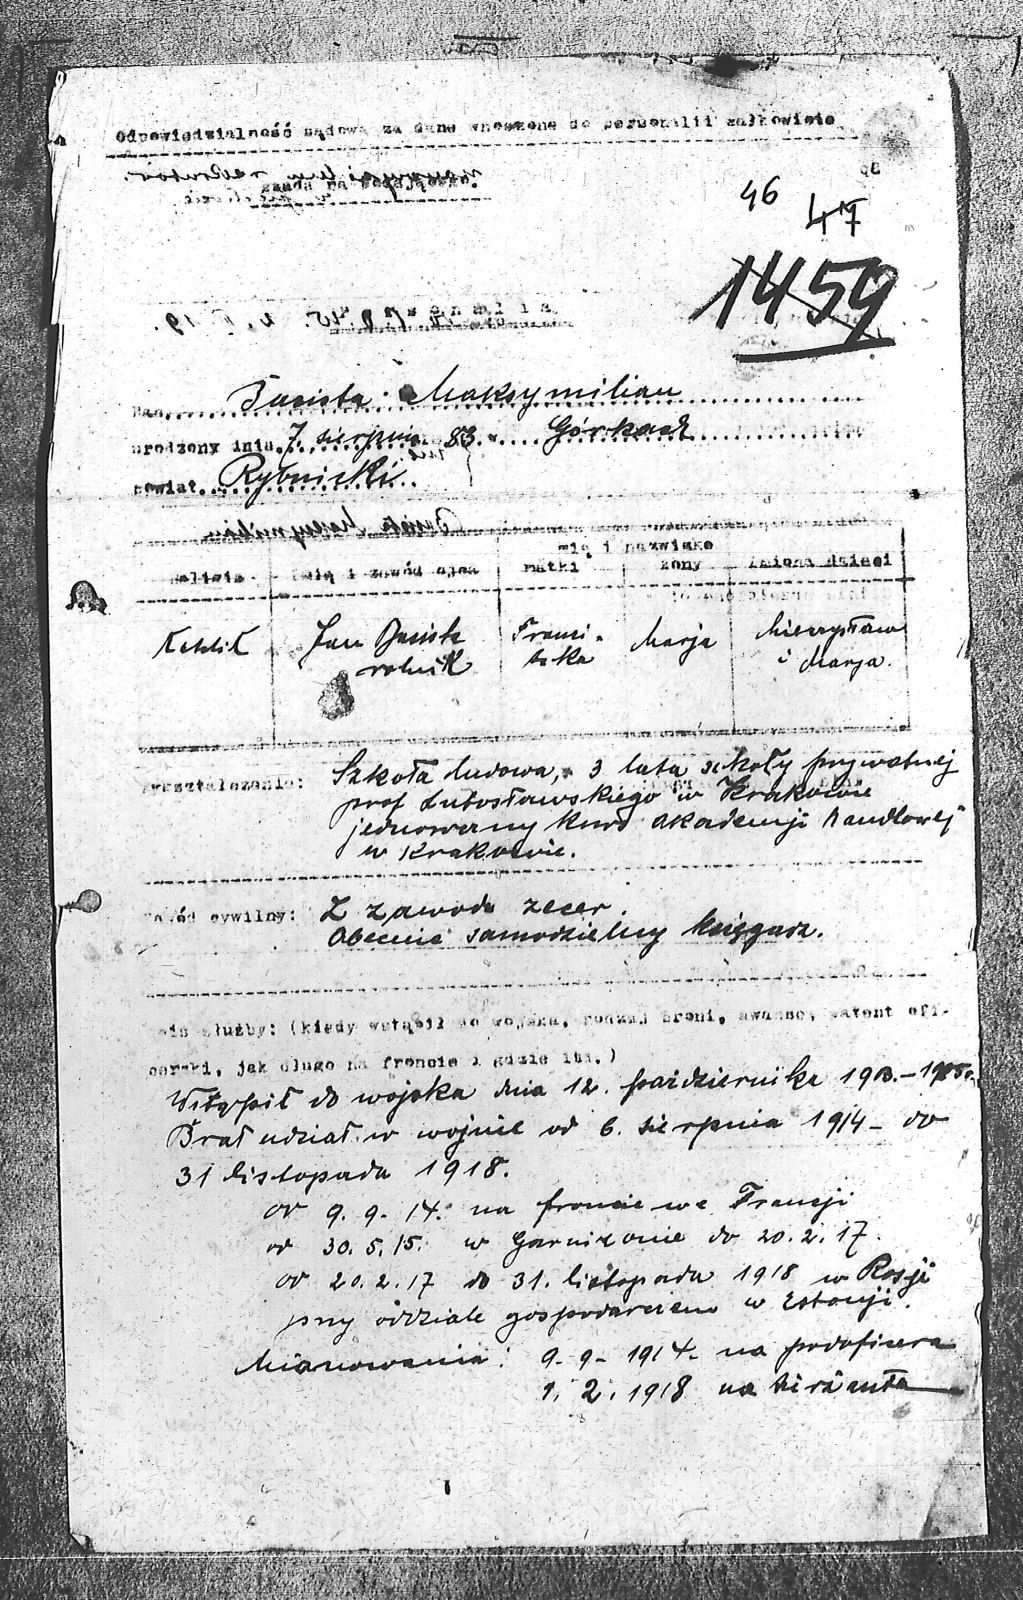 Odpowiedzialność sądowa za dane wnoszone do personalii całkowicie
46
47
1459
Pan Basista Maksymilian
urodzony dnia 7. sierpnia 83 w Górkach
powiat Rybnicki
imię i nazwisko
Religia Imię i zawód ojca matki żony Imiona dzieci
Katolik Jan Basista Franci- Marja Mieczysław
rolnik szka i Marja.
Wykształcenie: Szkoła ludowa, 3 lata szkoły prywatnej
prof Lutosławskiego w Krakowie
jednoroczny kurs akademji handlowej
w Krakowie.
Zawód cywilny: Z zawodu zecer.
Obecnie samodzielny księgarz.
służby: (kiedy wstąpił do wojska, rodzaj broni, awanse, patent ofi-
cerski, jak długo na froncie i gdzie itd.)
Wstąpił do wojska dnia 12. października 1903.-1905r.
Brał udział w wojnie od 6. sierpnia 1914 - do
31 listopada 1918.
od 9. 9. 14. na froncie we Francji
od 30. 5. 15. w Garnizonie do 20. 2. 17.
od 20. 2. 17 do 31. listopada 1918 w Rosji
przy oddziale gospodarczem w Estonji.
Mianowania: 9. 9 - 1914. na podoficera
1. 2. 1918 na sierżanta